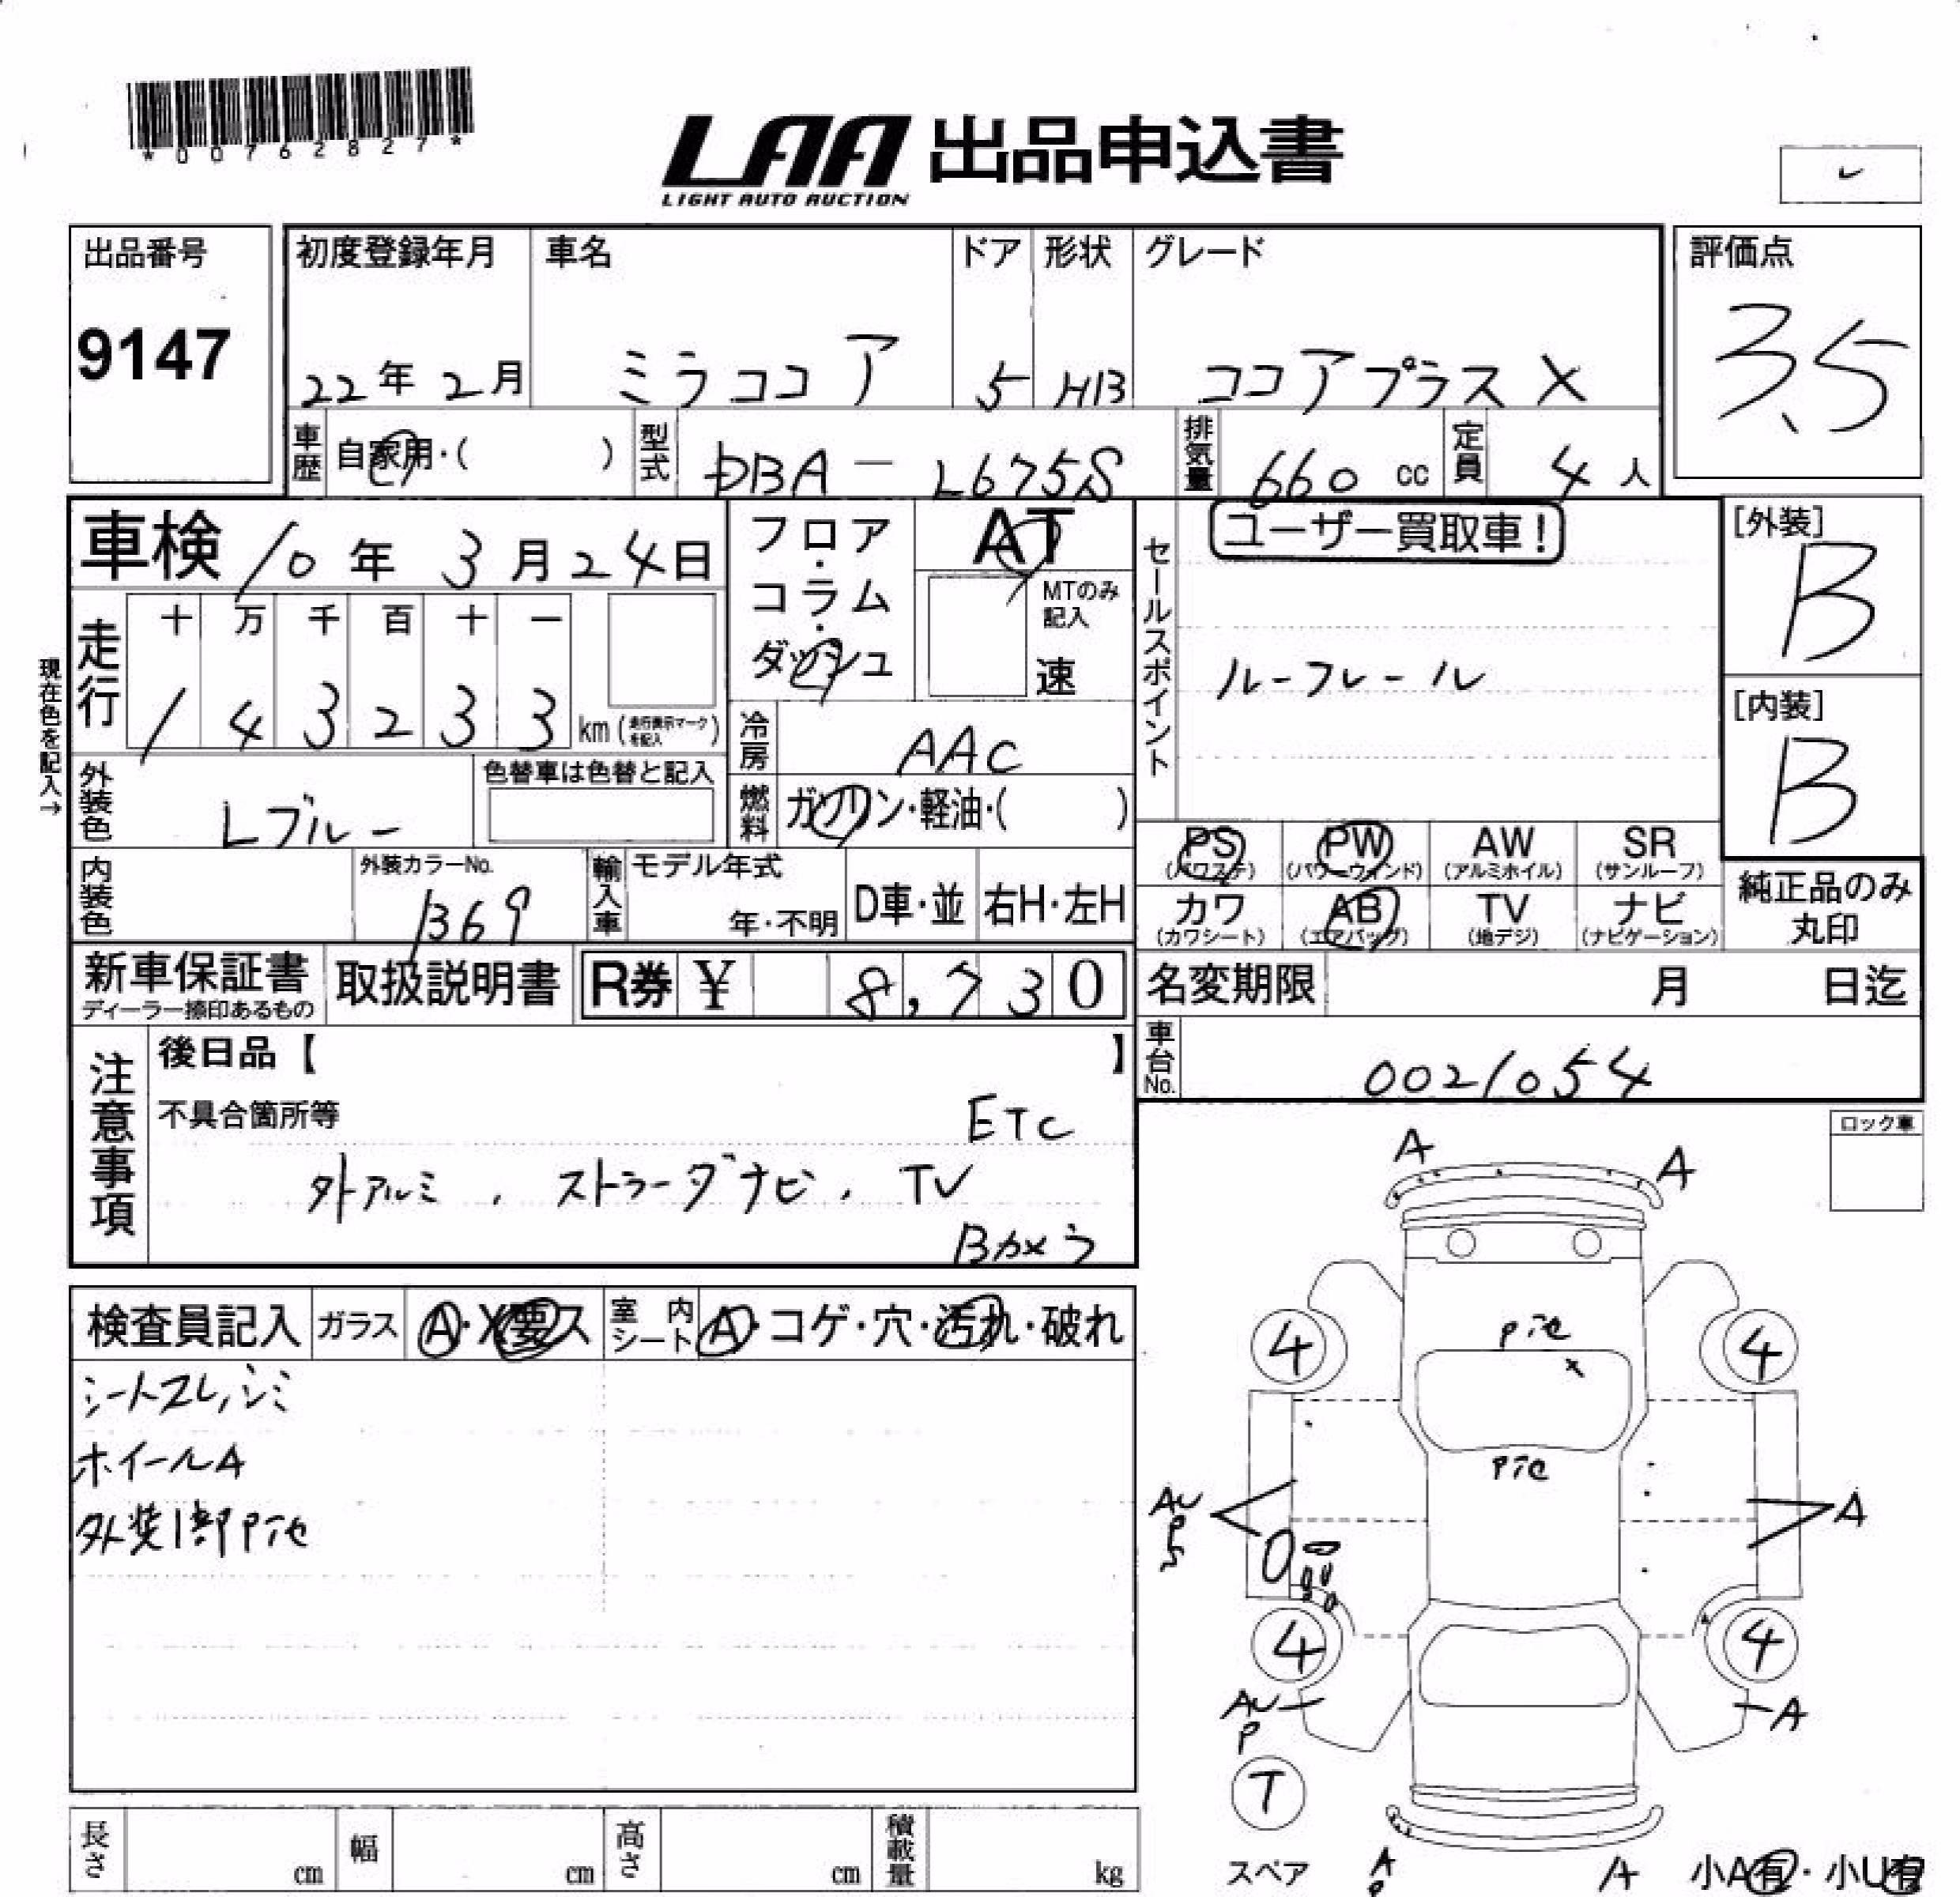 *00762827*
LAA 出品申込書
LIGHT AUTO AUCTION
出品番号
9147
初度登録年月
22年2月
車名
ミラココア
ドア
5
形状
H/B
グレード
ココアプラスX
評価点
3.5
車歴
自家用・( )
型式
DBA-L675S
排気量
660 cc
定員
4人
車検 10年3月24日
フロア・コラム・ダッシュ
AT
MTのみ記入
速
セールスポイント
ユーザー買取車!
ルーフレール
[外装]
B
[内装]
B
現在色を記入→
走行
十 万 千 百 十 一
1 4 3 2 3 3 km(走行表示マークを記入)
冷房
AAC
外装色
Lブルー
色替車は色替と記入
燃料
ガソリン・軽油・( )
内装色
外装カラーNo.
B69
輸入車
モデル年式
年・不明
D車・並
右H・左H
PS (パワステ)
PW (パワーウィンド)
AW (アルミホイル)
SR (サンルーフ)
カワ (カワシート)
AB (エアバッグ)
TV (地デジ)
ナビ (ナビゲーション)
純正品のみ丸印
新車保証書
ディーラー捺印あるもの
取扱説明書
R券 ¥ 8,730
名変期限 月 日迄
車台No.
0021054
注意事項
後日品【 】
不具合箇所等
ETC
外アルミ、ストラーダナビ、TV
Bカメラ
ロック車
検査員記入
ガラス
A・X要ス
室内シート
A・コゲ・穴・汚れ・破れ
シートスレ,シミ
ホイールA
外装1部Pite
A
A
4
4
Pite
x
Pite
AU
P
S
A
4
4
AU
P
A
T
スペア
A
P
A
小A有・小U有
長さ cm
幅 cm
高さ cm
積載量 kg